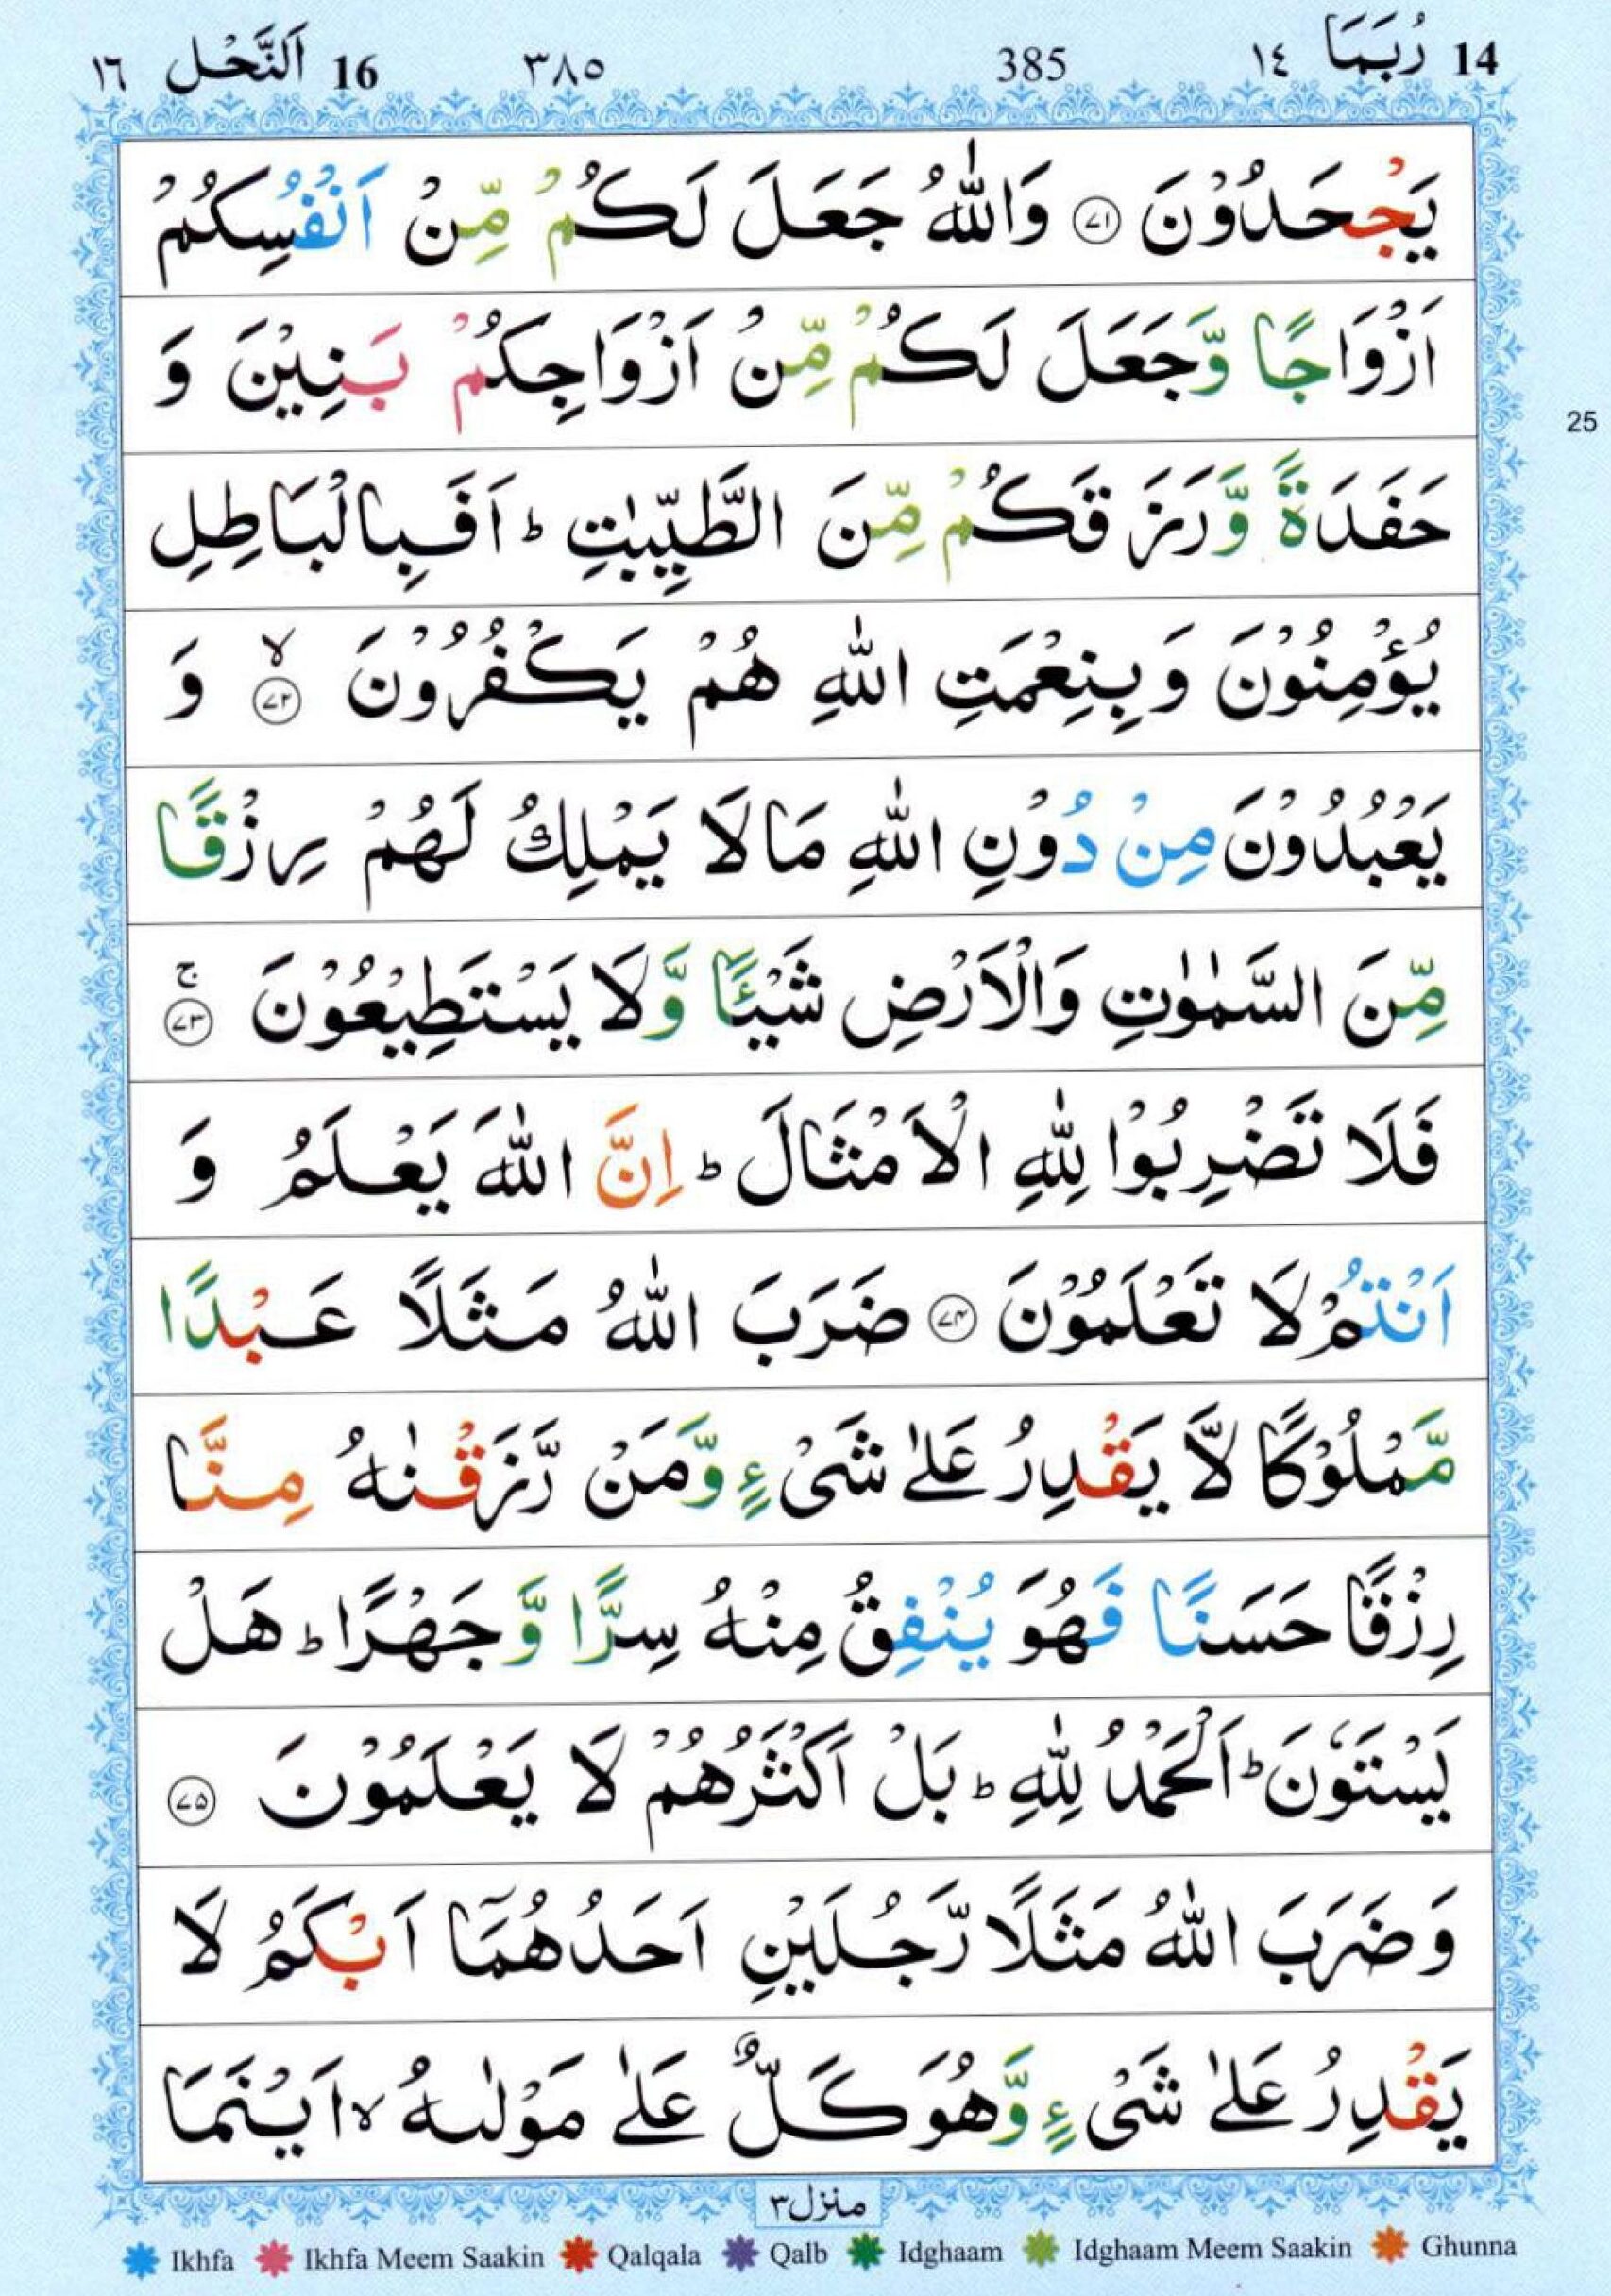 14 رُبَمَا ١٤ 385 ٣٨٥ 16 اَلنَّحْل ١٦
يَجْحَدُوْنَ ﴿٧١﴾ وَاللّٰهُ جَعَلَ لَكُمْ مِّنْ اَنْفُسِكُمْ
اَزْوَاجًا وَّجَعَلَ لَكُمْ مِّنْ اَزْوَاجِكُمْ بَنِيْنَ وَ
25
حَفَدَةً وَّرَزَقَكُمْ مِّنَ الطَّيِّبٰتِ ؕ اَفَبِالْبَاطِلِ
يُؤْمِنُوْنَ وَبِنِعْمَتِ اللّٰهِ هُمْ يَكْفُرُوْنَ ۙ﴿٧٢﴾ وَ
يَعْبُدُوْنَ مِنْ دُوْنِ اللّٰهِ مَا لَا يَمْلِكُ لَهُمْ رِزْقًا
مِّنَ السَّمٰوٰتِ وَالْاَرْضِ شَيْـًٔا وَّلَا يَسْتَطِيْعُوْنَ ۚ﴿٧٣﴾
فَلَا تَضْرِبُوْا لِلّٰهِ الْاَمْثَالَ ؕ اِنَّ اللّٰهَ يَعْلَمُ وَ
اَنْتُمْ لَا تَعْلَمُوْنَ ﴿٧٤﴾ ضَرَبَ اللّٰهُ مَثَلًا عَبْدًا
مَّمْلُوْكًا لَّا يَقْدِرُ عَلٰى شَىْءٍ وَّمَنْ رَّزَقْنٰهُ مِنَّا
رِزْقًا حَسَنًا فَهُوَ يُنْفِقُ مِنْهُ سِرًّا وَّجَهْرًا ؕ هَلْ
يَسْتَوٗنَ ؕ اَلْحَمْدُ لِلّٰهِ ؕ بَلْ اَكْثَرُهُمْ لَا يَعْلَمُوْنَ ﴿٧٥﴾
وَضَرَبَ اللّٰهُ مَثَلًا رَّجُلَيْنِ اَحَدُهُمَاۤ اَبْكَمُ لَا
يَقْدِرُ عَلٰى شَىْءٍ وَّهُوَ كَلٌّ عَلٰى مَوْلٰىهُ ۙ اَيْنَمَا
منزل ٣
Ikhfa Ikhfa Meem Saakin Qalqala Qalb Idghaam Idghaam Meem Saakin Ghunna